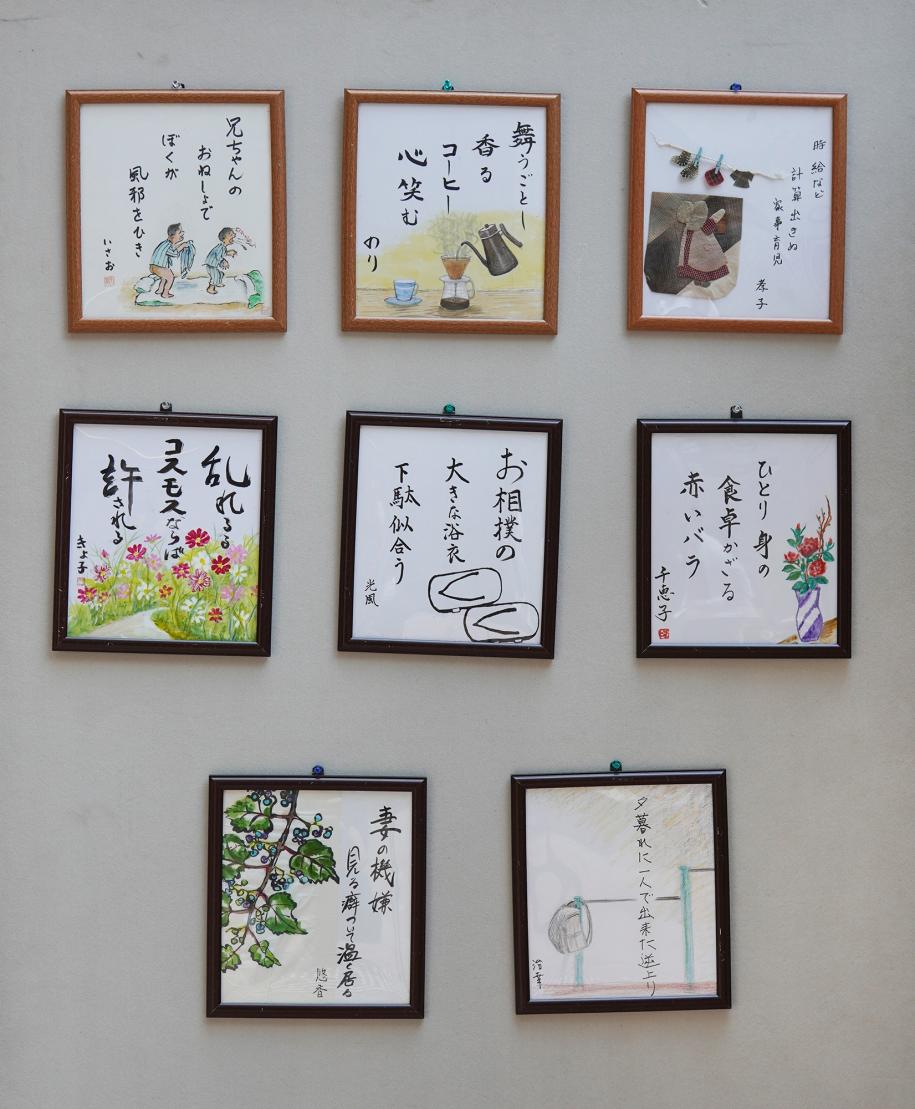 兄ちゃんの
おねしょで
ぼくが
風邪をひき
いさお
舞うごとし
香る
コーヒー
心笑む
のり
時給など
計算出きぬ
家事育児
孝子
乱れるる
コスモスならば
許される
きよ子
お相撲の
大きな浴衣
下駄似合う
光風
ひとり身の
食卓かざる
赤いバラ
千恵子
妻の機嫌
見る癖ついて温く居る
悠香
夕暮れに一人で出来た逆上り